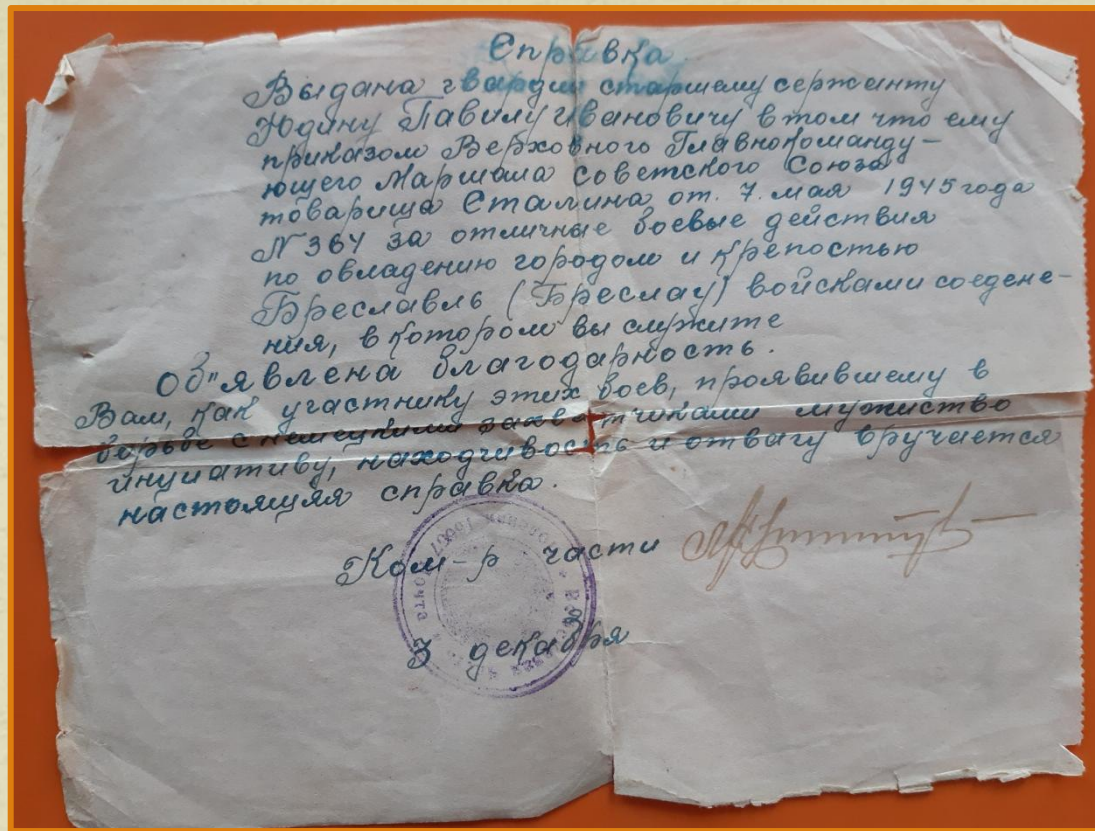 Справка
Выдана гвардии старшему сержанту
Юдину Павилу Ивановичу в том что ему
приказом Верховного Главнокоманду-
ющего Маршала советского Союза
товарища Сталина от. 7. мая 1945 года
N 364 за отличные боевые действия
по овладению городом и крепостью
Бреславль (Бреслау) войсками соедене-
ния, в котором вы служите
Об"явлена благодарность.
Вам, как участнику этих боев, проявившему в
борьбе с немецкими захватчиками мужиство
инциативу, находчивость и отвагу вручается
настоящяя справка.
Ком-р части
3 декабря